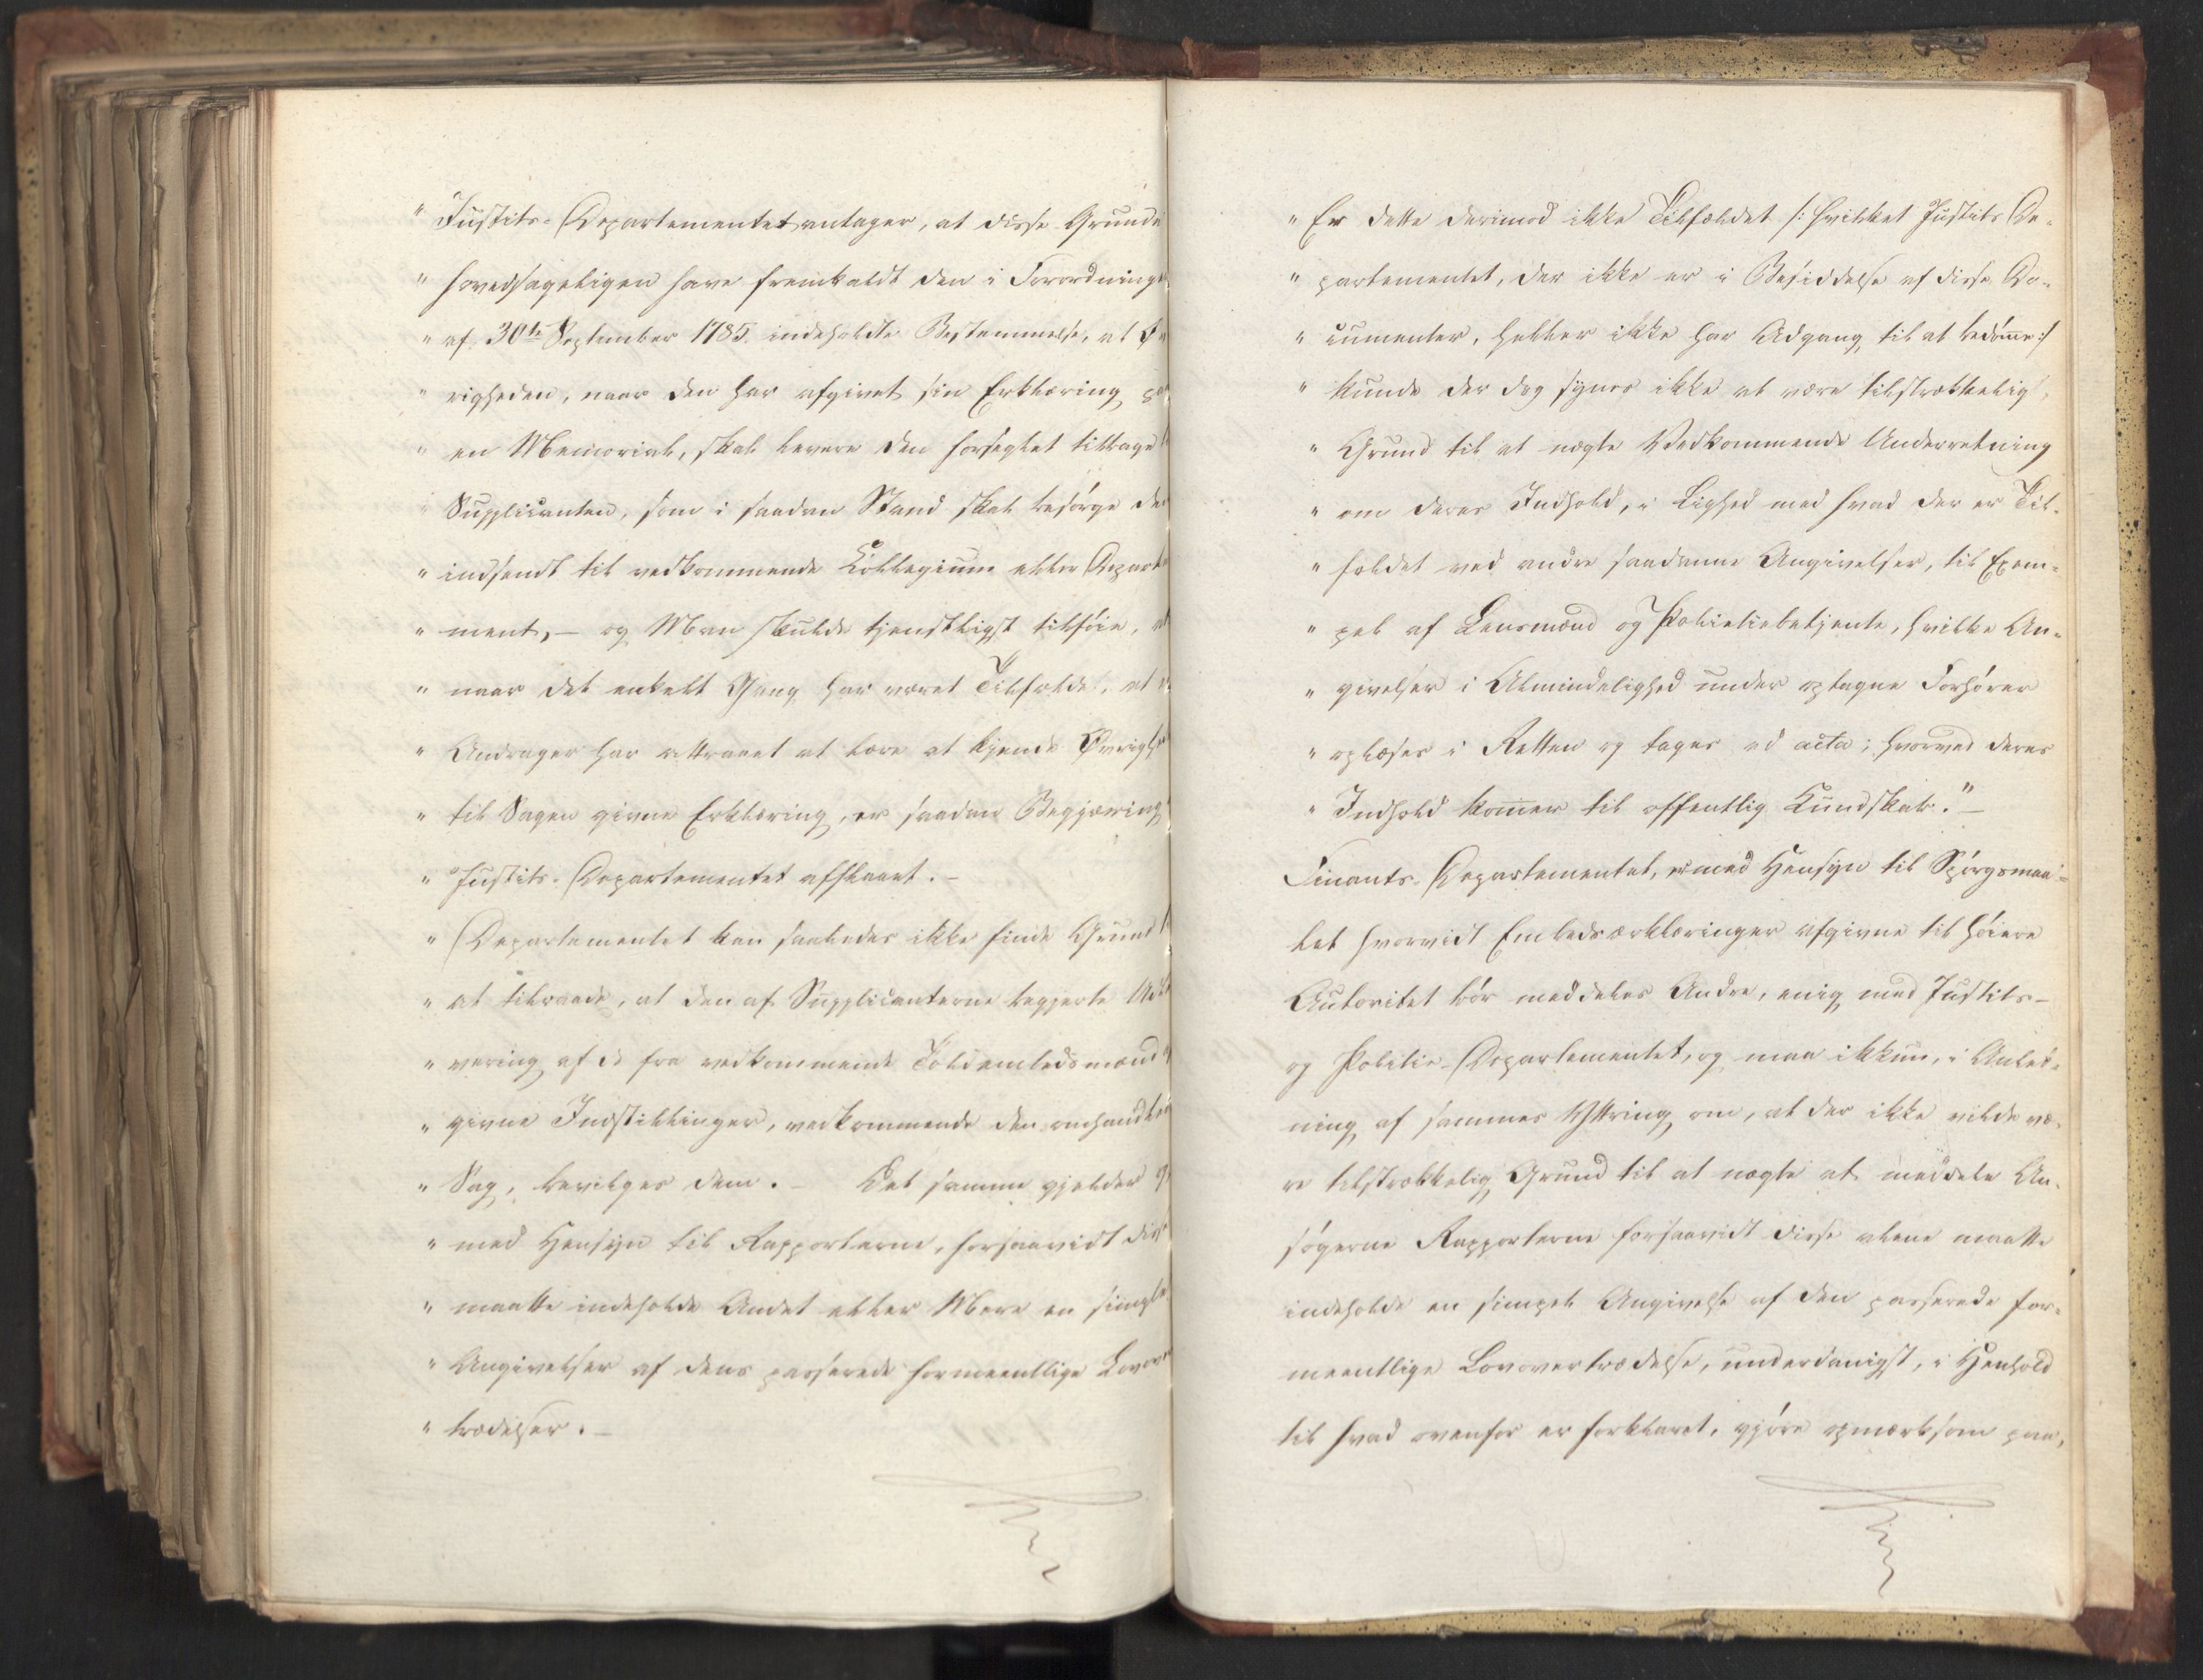 " Justits-Departementet antager, at disse Grunde
" hovedsageligen have fremkaldt den i Forordningen
" af 30te September 1785 indeholdte Bestemmelse, at Ø-
" righeden, naar den har afgivet sin Erklæring paa
" en Memorial, skal levere den forseglet tilbage til
" Supplicanten, som i saadan Stand skal besørge den
" indsendt til vedkommende Collegium eller Departe
" ment, — og Man skulde tjenstligst tilføie, at
" naar det enkelt Gang har været Tilfældet, at en
" Andrager har attraaet at lære at kjende Øvrighe
" til Sagen givne Erklæring, er saadan Begjæring
" Justits-Departementet afslaaet. —
" Departementet kan saaledes ikke finde Grund t
" at tilraade, at den af Supplicanterne begjerte Ud
" vering af de fra vedkommende Toldembedsmænd
" givne Indstillinger, vedkommende den omhandlede
" Sag, bevilges dem. — Det samme gjelder og
" med Hensyn til Rapporterne, forsaavidt disse
" maatte indeholde Andet eller Mere en simple
" Angivelser af dens passerede formeentlige Lovover
" trædelser. —
" Er dette derimod ikke Tilfældet /: hvilket Justits De-
" partementet, der ikke er i Besiddelse af disse Do-
" cumenter, heller ikke har Adgang til at bedømme :/
" kunde der dog synes ikke at være tilstrækkelig
" Grund til at nægte Vedkommende Underretning
" om deres Indhold, i Lighed med hvad der er Til-
" fældet ved andre saadanne Angivelser, til Exem-
" pel af Lensmænd og Politiebetjente, hvilke An-
" givelser i Almindelighed under optagne Forhører
" oplæses i Retten og tages ad acta; hvorved deres
" Indhold kommer til offentlig Kundskab." —
Finants-Departementet, er med Hensyn til Spørgsmaa-
let hvorvidt Embedserklæringer afgivne til høiere
Autoritet bør meddeles Andre, enig med Justits-
og Politie-Departementet, og maa ikkun, i Anled-
ning af sammes Yttring om, at der ikke vilde væ-
re tilstrækkelig Grund til at nægte at meddele An-
søgerne Rapporterne forsaavidt disse alene maatte
indeholde en simpel Angivelse af den passerede for-
meentlige Lovovertrædelse, underdanigst, i Henhold
til hvad ovenfor er forklaret, gjøre opmærksom paa,